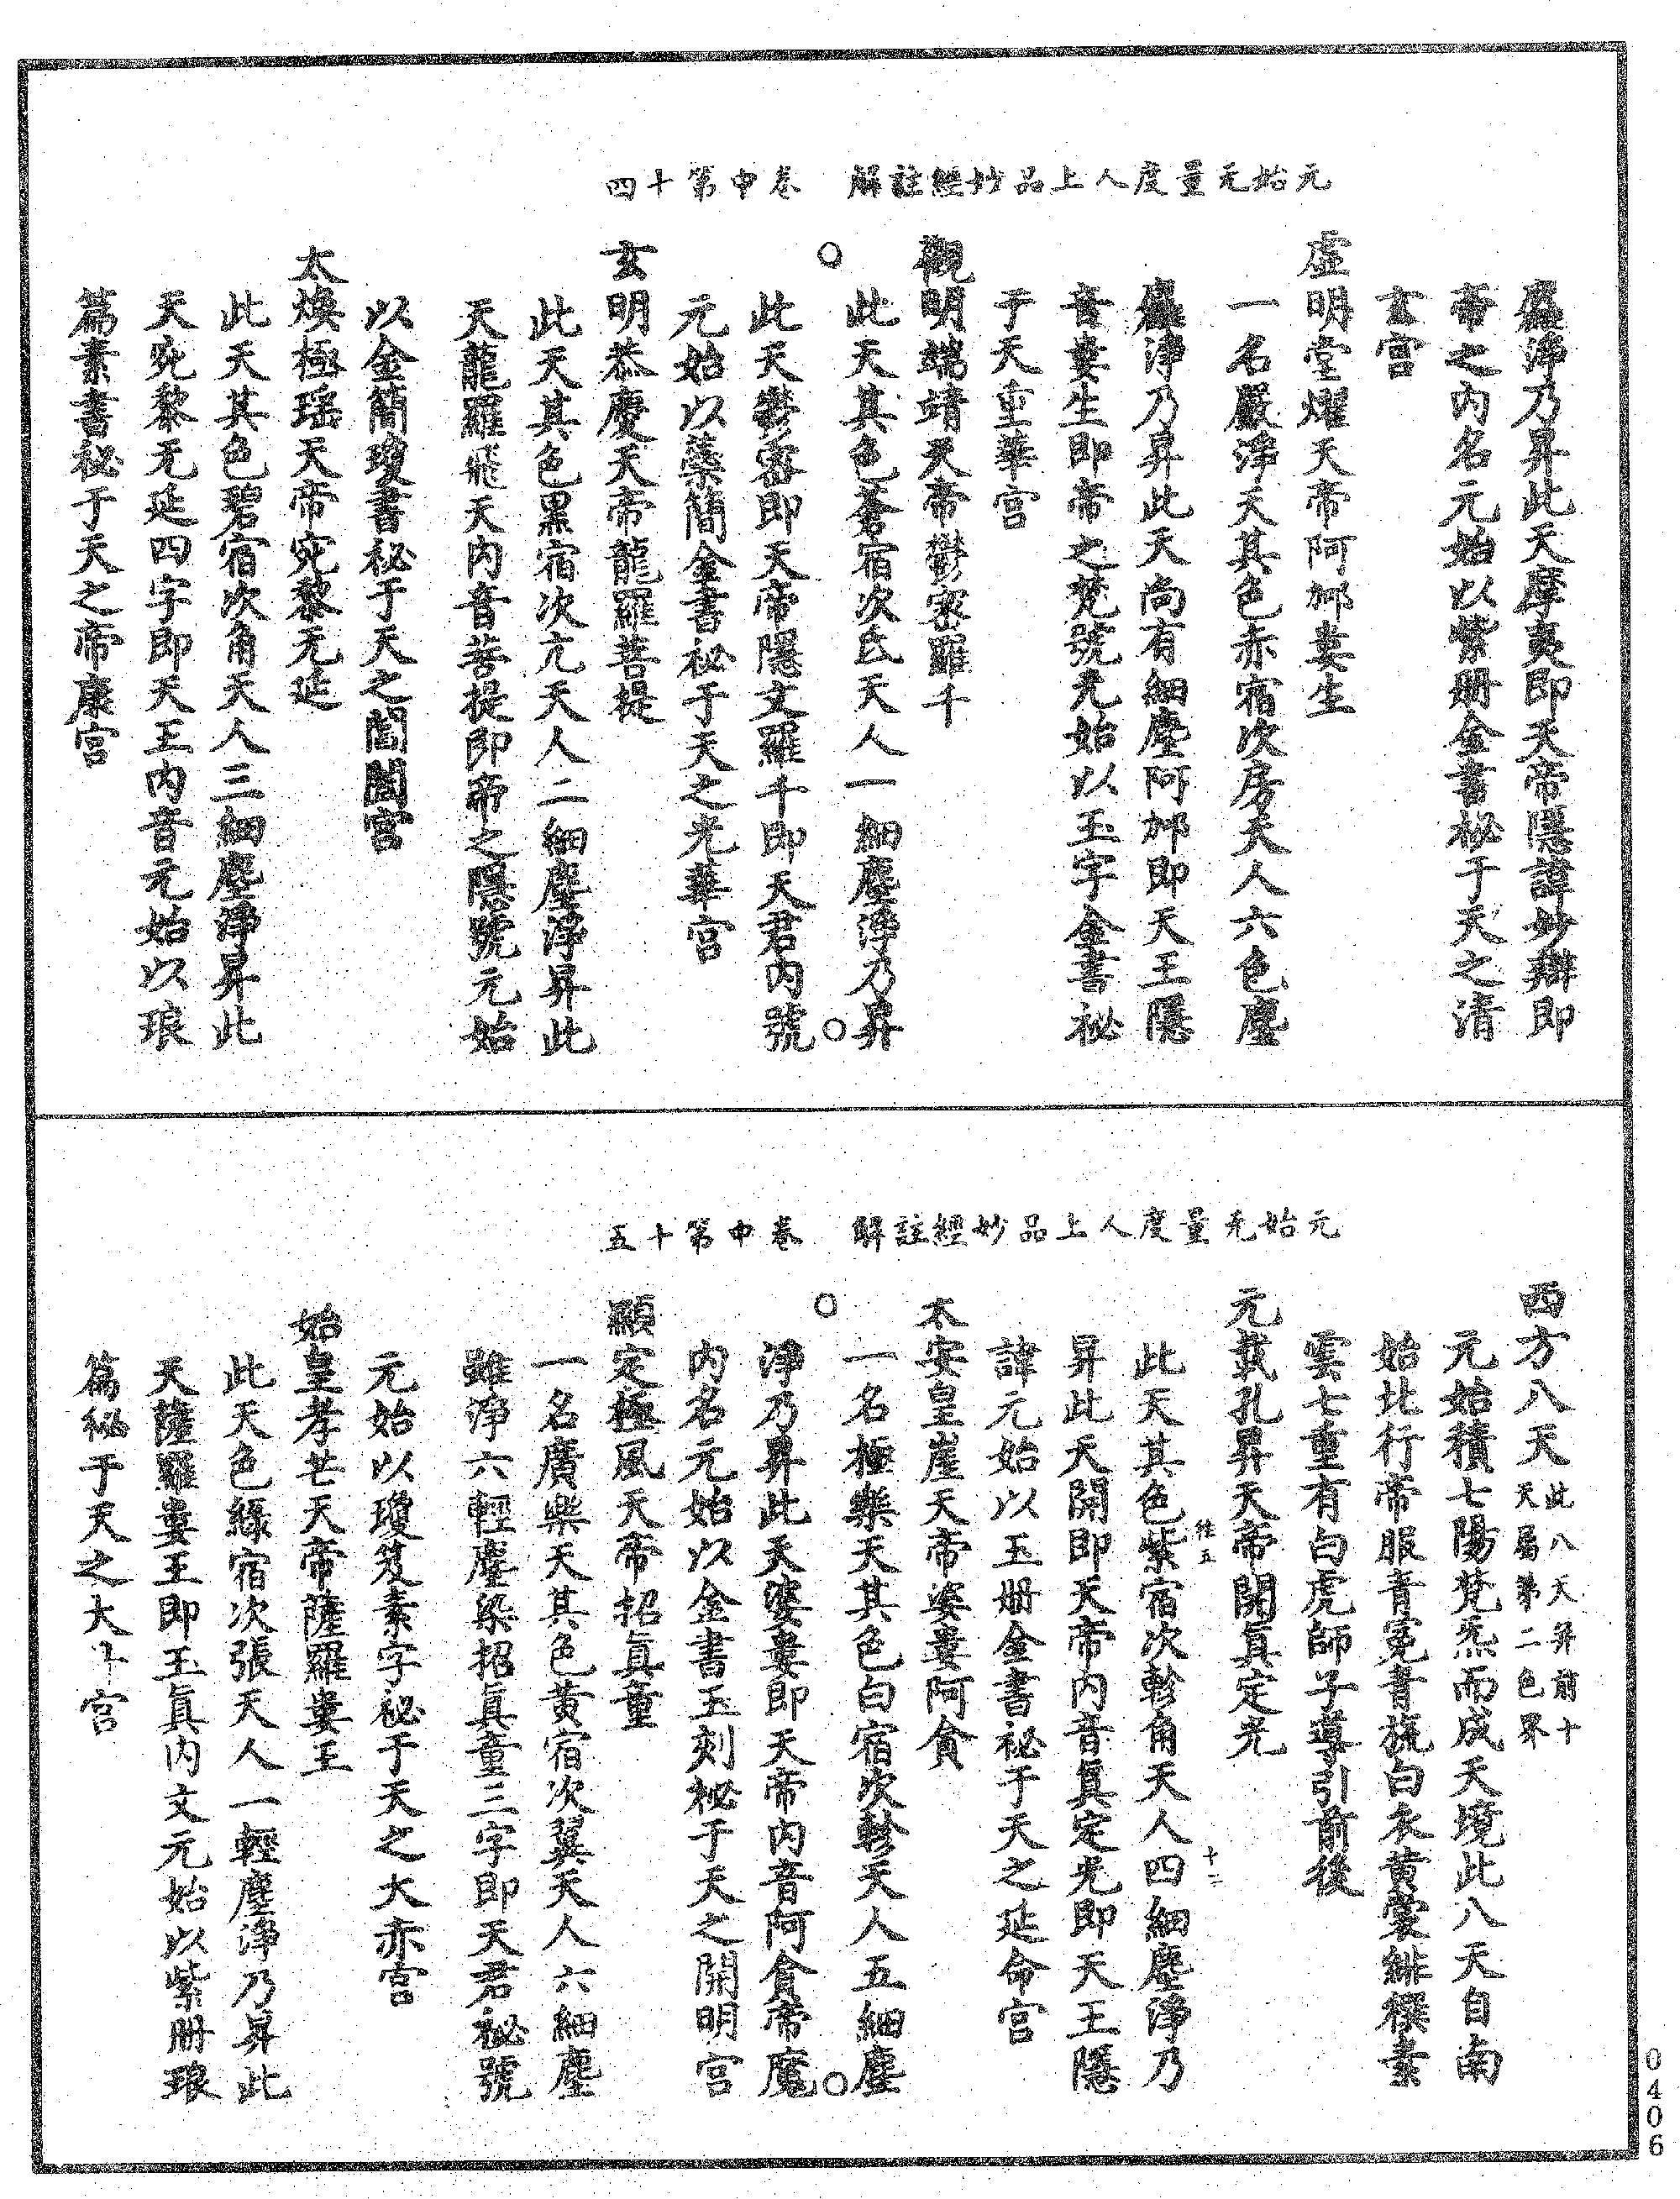 元始无量度人上品妙經註解　卷中第十四
麤淨乃昇此天摩夷即天帝隱諱妙辯即
帝之內名元始以紫册金書秘于天之清
玄宮
虛明堂燿天帝阿𨚗婁生
一名嚴淨天其色赤宿次房天人六色塵
麤淨乃昇此天尚有細塵阿𨚗即天王隱
音婁生即帝之梵號元始以玉字金書祕
于天重華宮
觀明端靖天帝鬱密羅千
此天其色蒼宿次氐天人一細塵淨乃昇
此天鬱密即天帝隱文羅千即天君內號
元始以蘂簡金書祕于天之光華宮
玄明恭慶天帝龍羅菩提
此天其色黑宿次亢天人二細塵淨昇此
天龍羅飛天內音菩提即帝之隱號元始
以金簡瓊書秘于天之閶闔宮
太煥極瑶天帝宛黎无延
此天其色碧宿次角天人三細塵淨昇此
天宛黎无延四字即天王內音元始以琅
篇素書秘于天之帝康宮
元始无量度人上品妙經註解　卷中第十五
西方八天此八天并前十天屬第二色界
元始積七陽梵炁而成天境此八天自南
始北行帝服青冕青旒白衣黄裳緋襈素
雲七重有白虎師子導引前後
元載孔昇天帝開眞定光
此天其色紫宿次軫角天人四細塵淨乃
昇此天開即天帝內音眞定光即天王隱
諱元始以玉册金書祕于天之延命宮
太安皇崖天帝婆婁阿貪
一名極樂天其色白宿次軫天人五細塵
淨乃昇此天婆婁即天帝內音阿貪帝魔
內名元始以金書玉刻祕于天之開明宮
顯定極風天帝招眞童
一名廣樂天其色黄宿次翼天人六細塵
雖淨六輕塵染招眞童三字即天君祕號
元始以瓊笈素字祕于天之大赤宮
始皇孝芒天帝薩羅婁王
此天色緑宿次張天人一輕塵淨乃昇此
天薩羅婁王即玉眞內文元始以紫册琅
篇祕于天之大宮
十二
0406